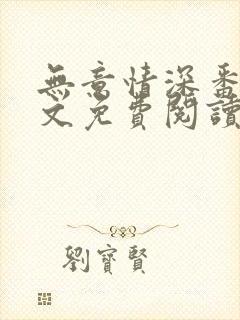 無意情深番
文免費閱讀
劉寶賢